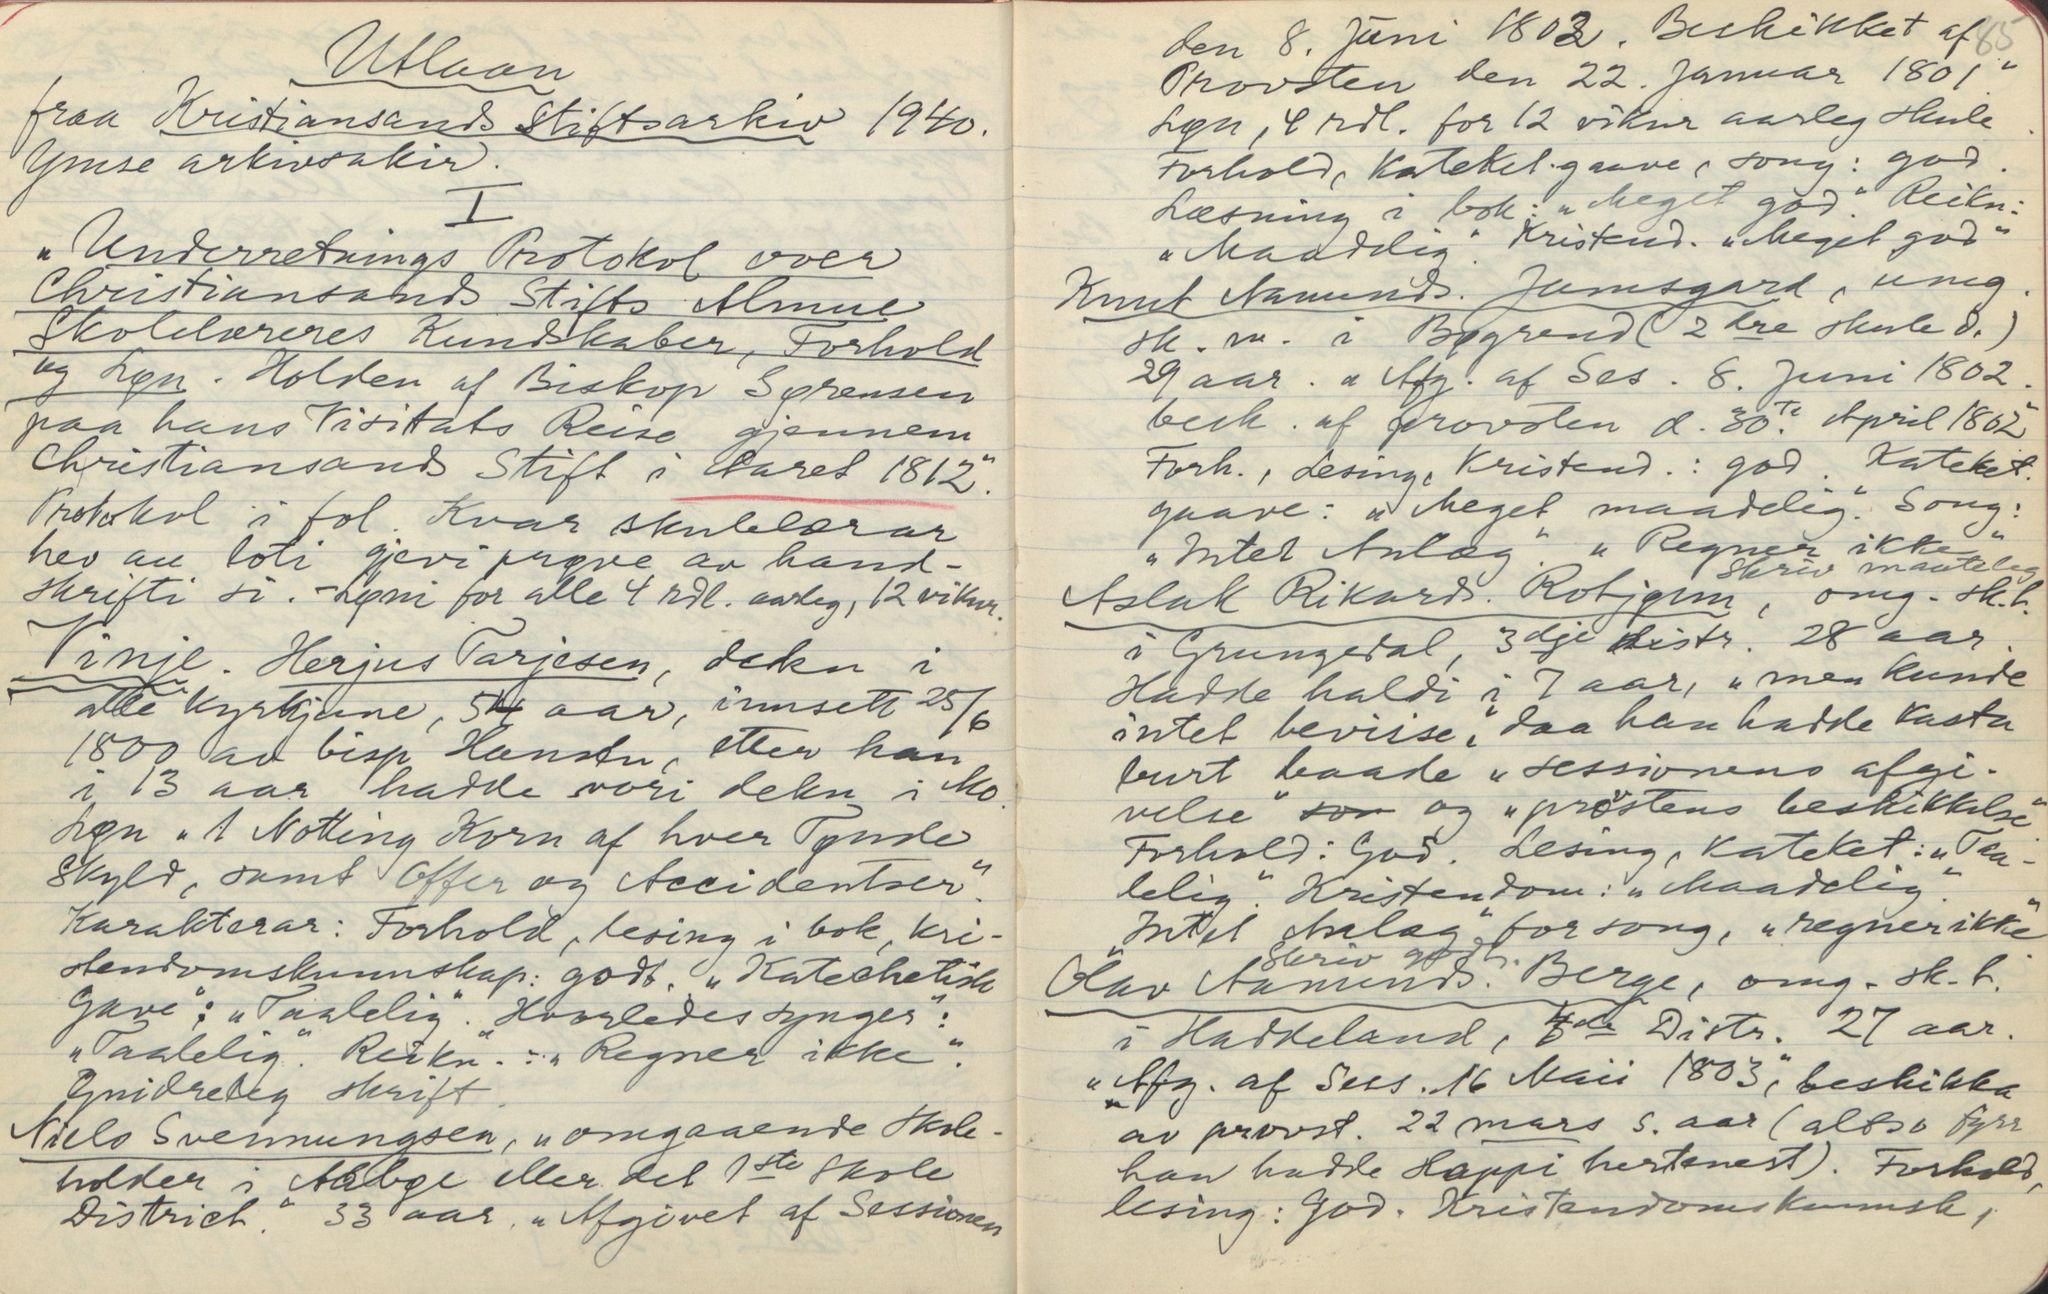 Utlaan
fraa Kristiansands Stiftsarkiv 1940.
Ymse arkivsakir.
I
"Underretnings Protokol over
Christiansands Stifts Almue
Skolelæreres Kundskaber, Forhold
og Løn. Holden af Biskop Sørensen
paa hans Visitats Reise gjennem
Christiansands Stift i Aaret 1812".
Protokol i fol. Kvar skulelærar
hev au loti gjevi prøve av hand-
skrifti si. - Løni for alle 4 rdl. aarleg, 12 vikur.
Vinje. Herjus Tarjesen, dekn i
alle kyrkjune, 54 aar, innsett 25/6
1800 av bisp Hansen, etter han
i 13 aar hadde vori dekn i Mo.
Løn "1 Notting Korn af hver Tynde
Skyld, samt Offer og Accidentser".
Karakterar: Forhold, lesing i bok, kri-
stendomskunnskap: godt. "Katechetisk
Gave": "Taalelig". Hvorledes synger":
"Taalelig". Reikn". : "Regner ikke".
Gnidreleg skrift.
Niels Svennungsen, "omgaaende Skole-
holder i Aabge eller det 1ste Skole
District." 33 aar. "Afgivet af Sessionen
85
den 8. Juni 1802. Beskikket af
Provsten den 22. Januar 1801."
Løn, 4 rdl. for 12 vikur aarleg skule.
Forhold, Kateket.gaave, song: god.
Læsning i bok: "Meget god." Reikn:
"Maadelig". Kristend. "Meget god"
Knut Aamunds. Jamsgard, umg.
sk.m. i Bøgrend (2dre skule d.)
29 aar. "Afg. af Ses. 8. Juni 1802.
besk. af provsten d. 30te April 1802"
Forh., Lesing, Kristend.: god. Kateket.
gaave: "Meget maadelig". Song:
"Intet Anlæg". "Regner ikke"
Skriv maateleg
Aslak Rikards. Rotjønn, omg. sk.h.
i Grungedal, 3dje distr. 28 aar.
Hadde haldi i 7 aar, "men kunde
intet bevise", daa han hadde kasta
burt baade "sessionens afgi-
velse" son og "provstens beskikkelse".
Forhold: God. Lesing, Kateket: "Taa-
lelig". Kristendom: "Maadelig".
Intet Anlæg" for song, "regner ikke"
Skriv godt.
Olav Aamunds. Berge, omg. sk.h.
i Haddeland, 4de Distr. 27 aar.
"Afg. af Sess. 16 Maii 1803", beskikka
av provst. 22 mars s. aar (altso fyrr
han hadde sloppi hertenest). Forhold,
lesing: God. Kristendomskunnsk,